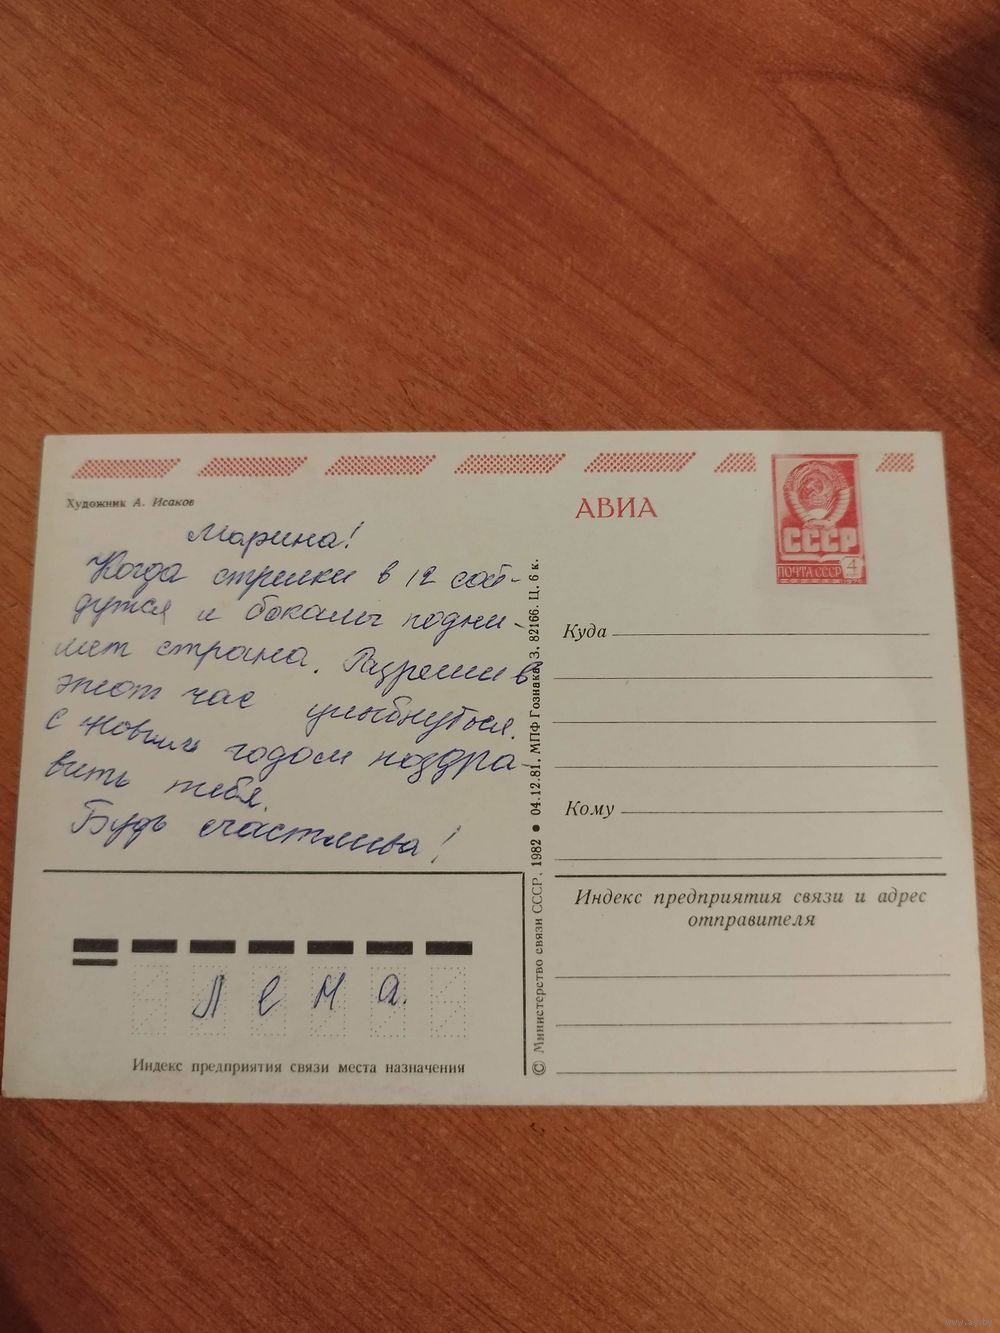 Художник А. Исаков
Марина!
Когда стрелки в 12 сой-
дутся и бокалы подни-
мет страна. Разреши в
этот час улыбнуться.
С Новым годом поздра-
вить тебя.
Будь счастлива!
Лена.
Индекс предприятия связи места назначения
© Министерство связи СССР, 1982 ● 04.12.81. МПФ Гознака. З. 82166. Ц. 6 к.
АВИА
СССР
ПОЧТА СССР 4
1976
Куда
Кому
Индекс предприятия связи и адрес
отправителя
www.ay.by